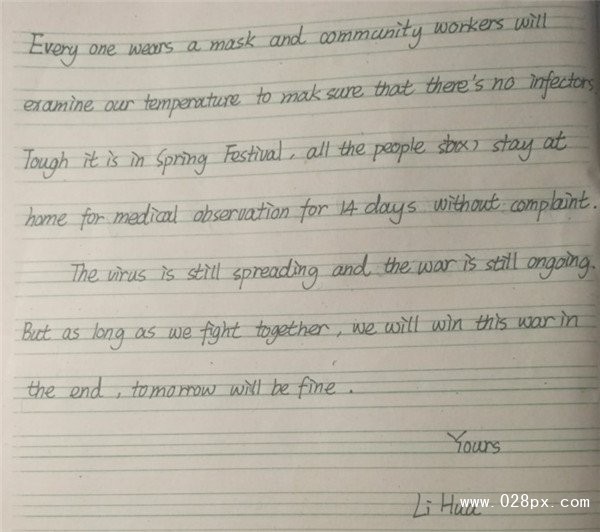 Every one wears a mask and community workers will
examine our temperature to mak sure that there's no infectors
Tough it is in Spring Festival, all the people stay at
home for medical observation for 14 days without complaint.
The virus is still spreading and the war is still ongoing.
But as long as we fight together, we will win this war in
the end, tomorrow will be fine.
Yours
Li Hua
www.028px.com